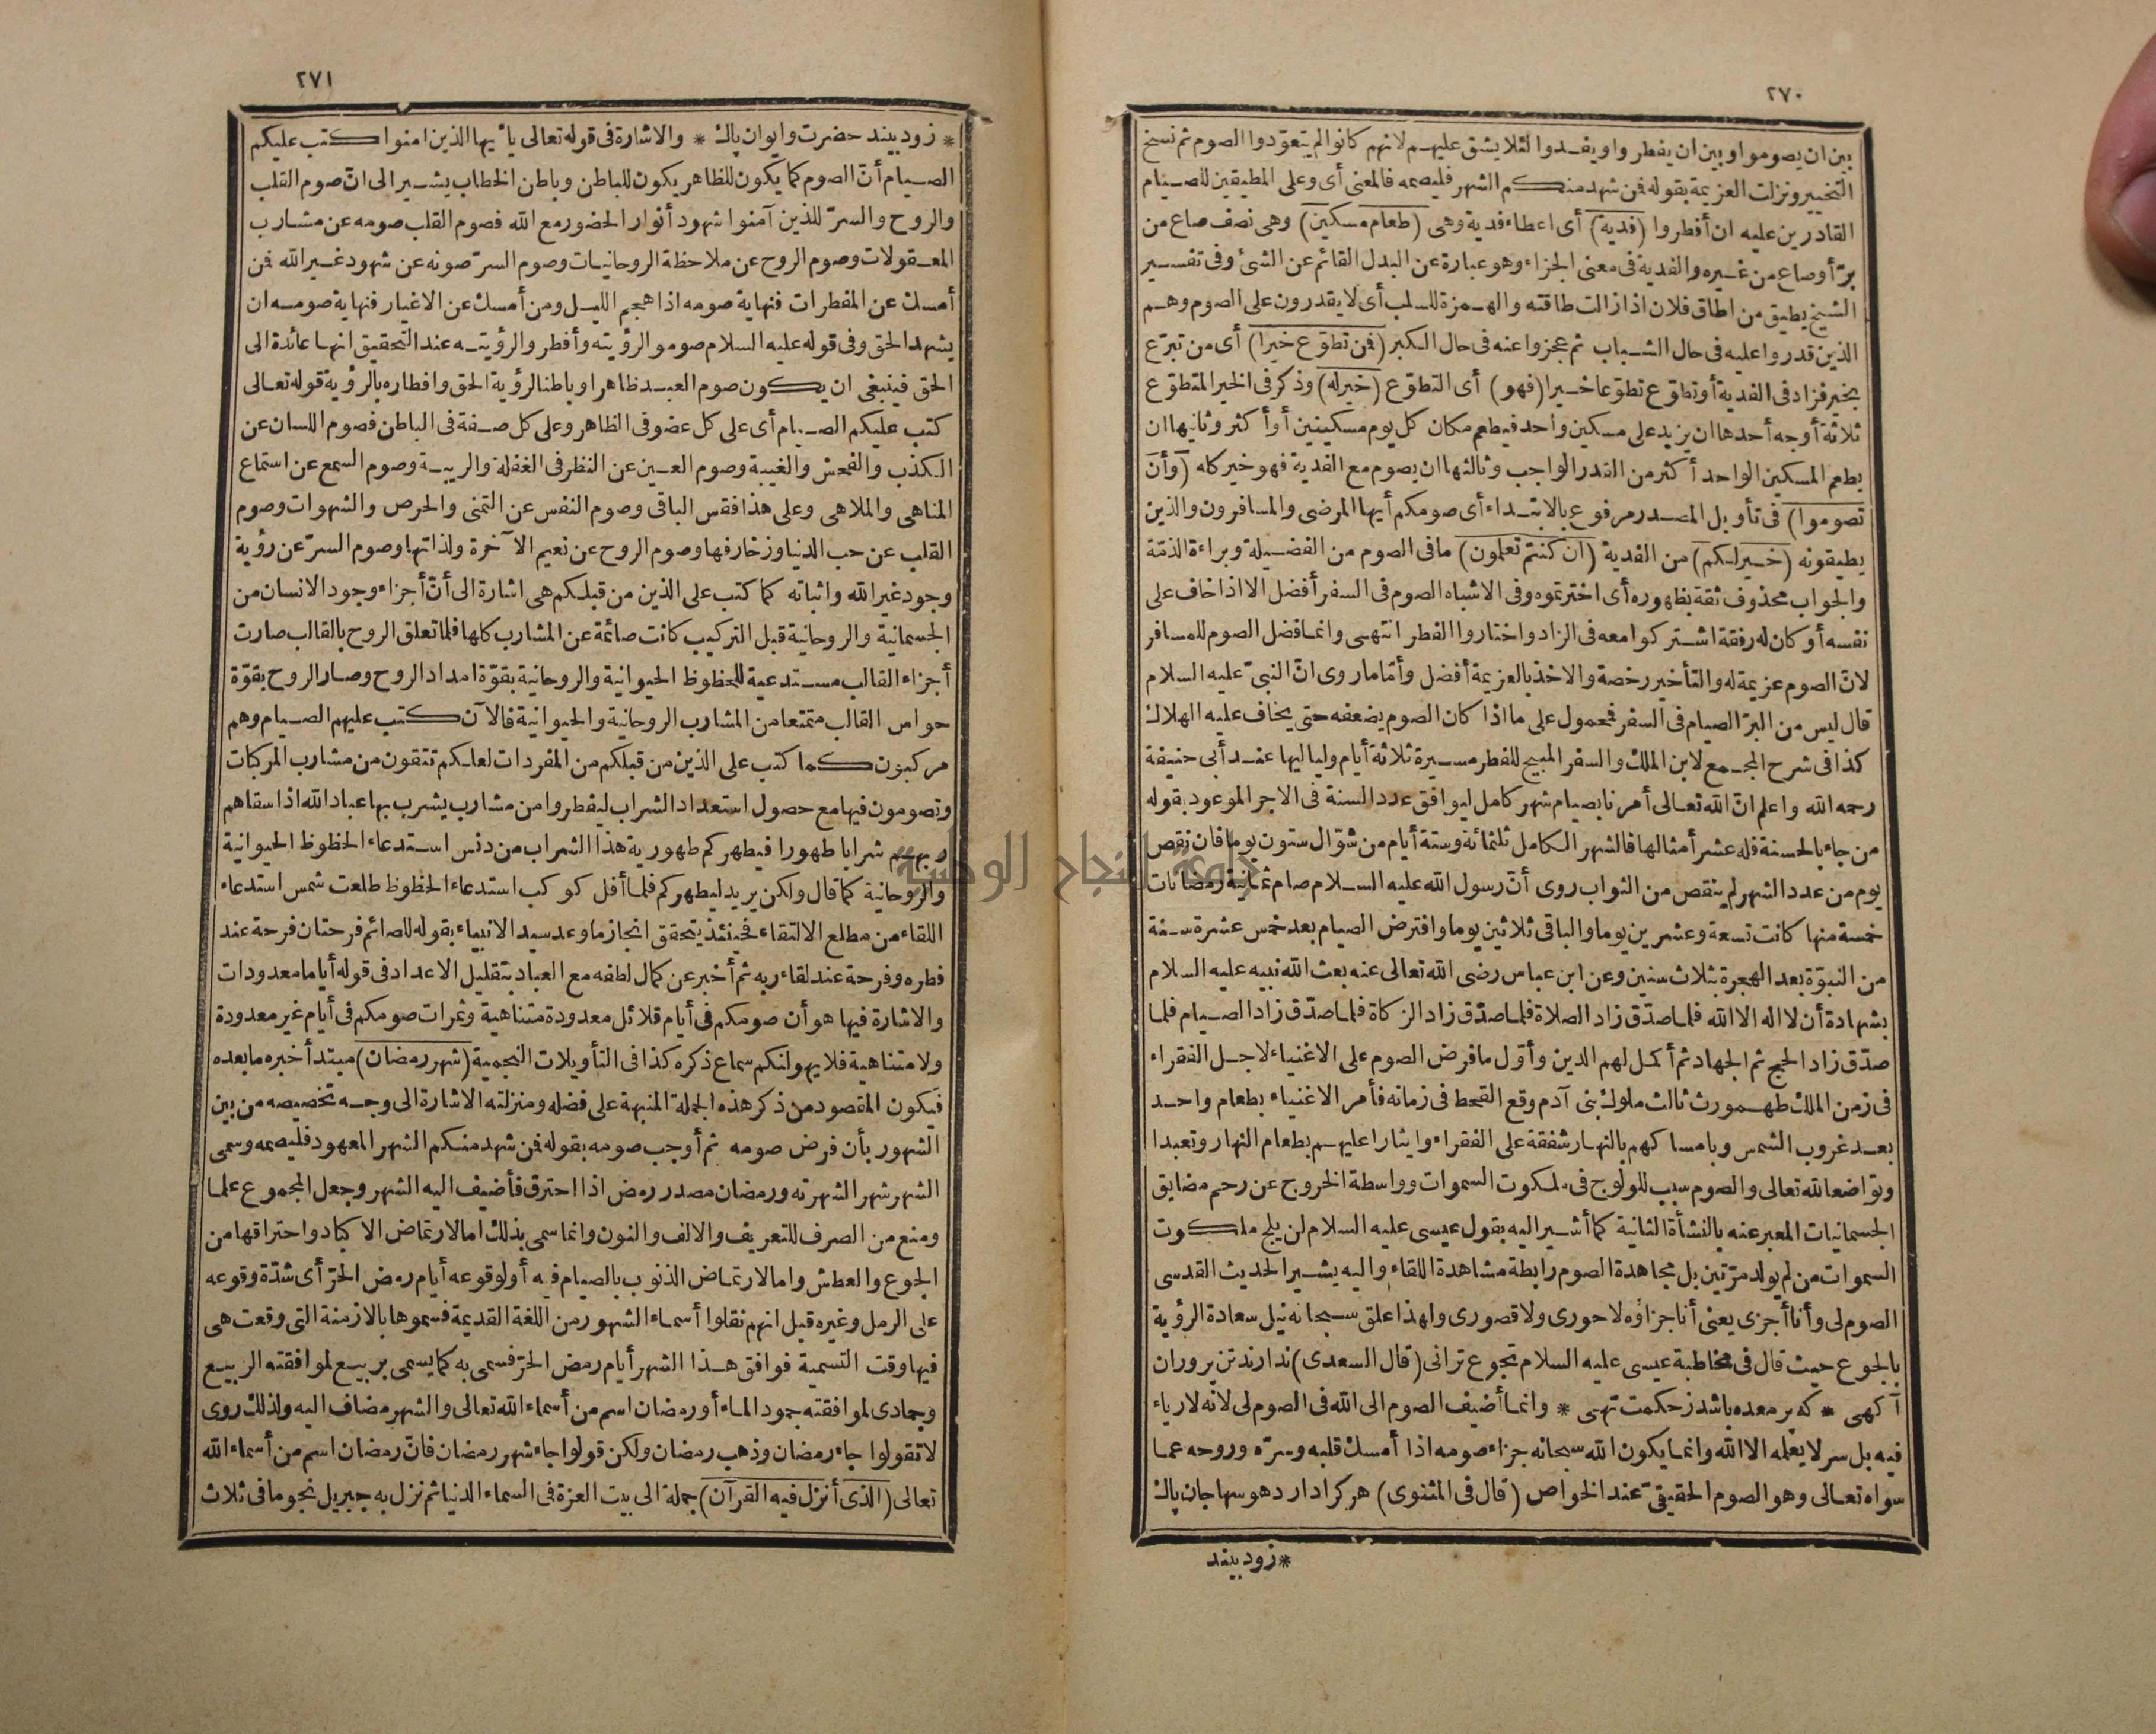 ٢٧٠
بين ان يصوموا وبين ان يفطروا ويفدوا لئلا يشق عليهم لانهم كانوا لم يتعودوا الصوم ثم نسخ
التخيير ونزلت العزيمة بقوله فمن شهد منكم الشهر فليصمه فالمعنى أى وعلى المطيقين للصيام
القادرين عليه ان أفطروا (فدية) أى اعطاء فدية وهى (طعام مسكين) وهى نصف صاع من
برّ أوصاع من غيره والفدية فى معنى الجزاء وهو عبارة عن البدل القائم عن الشئ وفى تفسير
الشيخ يطيق من اطاق فلان اذا زالت طاقته والهمزة للسلب أى لا يقدرون على الصوم وهم
الذين قدروا عليه فى حال الشباب ثم عجزوا عنه فى حال الكبر (فمن تطوّع خيرا) أى من تبرّع
بخير فزاد فى الفدية أو تطوّع تطوّعا خيرا (فهو) أى التطوّع (خير له) وذكر فى الخير المتطوّع
ثلاثة أوجه أحدها ان يزيد على مسكين واحد فيطعم مكان كل يوم مسكينين أو أكثر وثانيها ان
يطعم المسكين الواحد أكثر من القدر الواجب وثالثها ان يصوم مع الفدية فهو خير كله (وأن
تصوموا) فى تأويل المصدر مرفوع بالابتداء أى صومكم أيها المرضى والمسافرون والذين
يطيقونه (خير لكم) من الفدية (ان كنتم تعلمون) ما فى الصوم من الفضيلة وبراءة الذمّة
والجواب محذوف ثقة بظهوره أى اخترتموه وفى الاشباه الصوم فى السفر أفضل الا اذا خاف على
نفسه أو كان له رفقة اشتركوا معه فى الزاد واختاروا الفطر انتهى وانما فضل الصوم للمسافر
لانّ الصوم عزيمة له والتأخير رخصة والاخذ بالعزيمة أفضل وأمّا ما روى انّ النبىّ عليه السلام
قال ليس من البرّ الصيام فى السفر فمحمول على ما اذا كان الصوم يضعفه حتى يخاف عليه الهلاك
كذا فى شرح المجمع لابن الملك والسفر المبيح للفطر مسيرة ثلاثة أيام ولياليها عند أبى حنيفة
رحمه الله واعلم انّ الله تعالى أمرنا بصيام شهر كامل ليوافق عدد السنة فى الاجر الموعود بقوله
من جاء بالحسنة فله عشر أمثالها فالشهر الكامل ثلثمائة وستة أيام من شوّال ستون يوما فان نقص
يوم من عدد الشهر لم ينقص من الثواب روى أنّ رسول الله عليه السلام صام ثمانية رمضانات
خمسة منها كانت تسعة وعشرين يوما والباقى ثلاثين يوما وافترض الصيام بعد خمس عشرة سنة
من النبوّة بعد الهجرة بثلاث سنين وعن ابن عباس رضى الله تعالى عنه بعث الله نبيه عليه السلام
بشهادة أن لا اله الا الله فلما صدّق زاد الصلاة فلما صدّق زاد الزكاة فلما صدّق زاد الصيام فلما
صدّق زاد الحج ثم الجهاد ثم أكمل لهم الدين وأوّل ما فرض الصوم على الاغنياء لاجل الفقراء
فى زمن الملك طهمورث ثالث ملوك بنى آدم وقع القحط فى زمانه فأمر الاغنياء بطعام واحد
بعد غروب الشمس وبامساكهم بالنهار شفقة على الفقراء وايثارا عليهم بطعام النهار وتعبدا
وتواضعا لله تعالى والصوم سبب للولوج فى ملكوت السموات وواسطة الخروج عن رحم مضايق
الجسمانيات المعبر عنه بالنشأة الثانية كما أشير اليه بقول عيسى عليه السلام لن يلج ملكوت
السموات من لم يولد مرّتين بل مجاهدة الصوم رابطة مشاهدة اللقاء واليه يشير الحديث القدسى
الصوم لى وأنا أجزى يعنى أنا جزاؤه لا حورى ولا قصورى ولهذا علق سبحانه نيل سعادة الرؤية
بالجوع حيث قال فى مخاطبة عيسى عليه السلام تجوع ترانى (قال السعدى) ندارند تن پروران
آكهى * كه پر معده باشد ز حكمت تهى * وانما أضيف الصوم الى الله فى الصوم لى لانّه لا رياء
فيه بل سر لا يعلمه الا الله وانما يكون الله سبحانه جزاء صومه اذا أمسك قلبه وسرّه وروحه عما
سواه تعالى وهو الصوم الحقيقىّ عند الخواص (قال فى المثنوى) هر كرا دارد هوسها جان پاك
* زود بيند
٢٧١
* زود بيند حضرت وايوان پاك * والاشارة فى قوله تعالى يا أيها الذين امنوا كتب عليكم
الصيام أنّ الصوم كما يكون للظاهر يكون للباطن وباطن الخطاب يشير الى انّ صوم القلب
والروح والسرّ للذين آمنوا شهود أنوار الحضور مع الله فصوم القلب صومه عن مشارب
المعقولات وصوم الروح عن ملاحظة الروحانيات وصوم السرّ صونه عن شهود غير الله فمن
أمسك عن المفطرات فنهاية صومه اذا هجم الليل ومن أمسك عن الاغيار فنهاية صومه ان
يشهد الحق وفى قوله عليه السلام صوموا لرؤيته وأفطروا لرؤيته عند التحقيق انها عائدة الى
الحق فينبغى ان يكون صوم العبد ظاهرا وباطنا لرؤية الحق وافطاره بالرؤية قوله تعالى
كتب عليكم الصيام أى على كل عضو فى الظاهر وعلى كل صفة فى الباطن فصوم اللسان عن
الكذب والفحش والغيبة وصوم العين عن النظر فى الغفلة والريبة وصوم السمع عن استماع
المناهى والملاهى وعلى هذا فقس الباقى وصوم النفس عن التمنى والحرص والشهوات وصوم
القلب عن حب الدنيا وزخارفها وصوم الروح عن نعيم الآخرة ولذاتها وصوم السرّ عن رؤية
وجود غير الله واثباته كما كتب على الذين من قبلكم هى اشارة الى أنّ أجزاء وجود الانسان من
الجسمانية والروحانية قبل التركيب كانت صائمة عن المشارب كلها فلما تعلق الروح بالقالب صارت
أجزاء القالب مستدعية للحظوظ الحيوانية والروحانية بقوّة امداد الروح وصار الروح بقوّة
حواس القالب متمتعا من المشارب الروحانية والحيوانية فالآن كتب عليهم الصيام وهم
مركبون كما كتب على الذين من قبلكم من المفردات لعلكم تتقون من مشارب المركبات
وتصومون فيها مع حصول استعداد الشراب ليفطروا من مشارب يشرب بها عباد الله اذا سقاهم
ربهم شرابا طهورا فيطهركم طهورية هذا الشراب من دنس استدعاء الحظوظ الحيوانية
والروحانية كما قال ولكن يريد ليطهركم فلما أفل كوكب استدعاء الحظوظ طلعت شمس استدعاء
اللقاء من مطلع الالتقاء فحينئذ يتحقق انجاز ما وعد سيد الانبياء بقوله للصائم فرحتان فرحة عند
فطره وفرحة عند لقاء ربه ثم أخبر عن كمال لطفه مع العباد بتقليل الاعداد فى قوله أياما معدودات
والاشارة فيها هو أن صومكم فى أيام قلائل معدودة متناهية وثمرات صومكم فى أيام غير معدودة
ولا متناهية فلا يهولنكم سماع ذكره كذا فى التأويلات النجمية (شهر رمضان) مبتدأ خبره ما بعده
فيكون المقصود من ذكر هذه الجملة المنبهة على فضله ومنزلته الاشارة الى وجه تخصيصه من بين
الشهور بأن فرض صومه ثم أوجب صومه بقوله فمن شهد منكم الشهر المعهود فليصمه وسمى
الشهر شهرا لشهرته ورمضان مصدر رمض اذا احترق فأضيف اليه الشهر وجعل المجموع علما
ومنع من الصرف للتعريف والالف والنون وانما سمى بذلك اما لارتماض الاكباد واحتراقها من
الجوع والعطش واما لارتماض الذنوب بالصيام فيه أو لوقوعه أيام رمض الحرّ أى شدّة وقوعه
على الرمل وغيره قيل انهم نقلوا أسماء الشهور من اللغة القديمة فسموها بالازمنة التى وقعت هى
فيها وقت التسمية فوافق هذا الشهر أيام رمض الحرّ فسمى به كما يسمى بربيع لموافقته الربيع
وجمادى لموافقته جمود الماء أو رمضان اسم من أسماء الله تعالى والشهر مضاف اليه ولذلك روى
لا تقولوا جاء رمضان وذهب رمضان ولكن قولوا جاء شهر رمضان فانّ رمضان اسم من أسماء الله
تعالى (الذى أنزل فيه القرآن) جملة الى بيت العزة فى السماء الدنيا ثم نزل به جبريل نجوما فى ثلاث
جامعة النجاح الوطنية